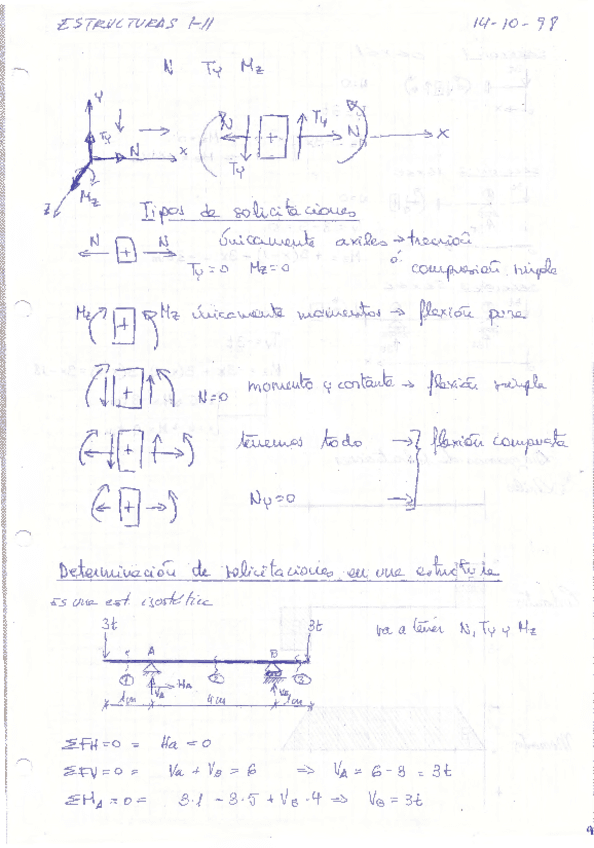 ESTRUCTURAS I-II 14-10-98
N Ty Mz
Y
Ty N x
Mz
z
N + Ty N x
Ty
Tipos de solicitaciones
N + N únicamente axiles → tracción
Ty=0 Mz=0 ó
compresión simple
Mz + Mz únicamente momentos → flexión pura
+ N=0 momento y cortante → flexión simple
+ tenemos todo → flexión compuesta
+ Ny=0 →
Determinación de solicitaciones en una estructura
Es una est isostática
3t 3t va a tener N, Ty y Mz
A B
1 VA HA 2 VB 3
1m 4m 1m
ΣFH=0 = Ha = 0
ΣFV=0 = Va + VB = 6 ⇒ VA = 6-3 = 3t
ΣMA=0 = 3·1 - 3·5 + VB·4 ⇒ VB = 3t